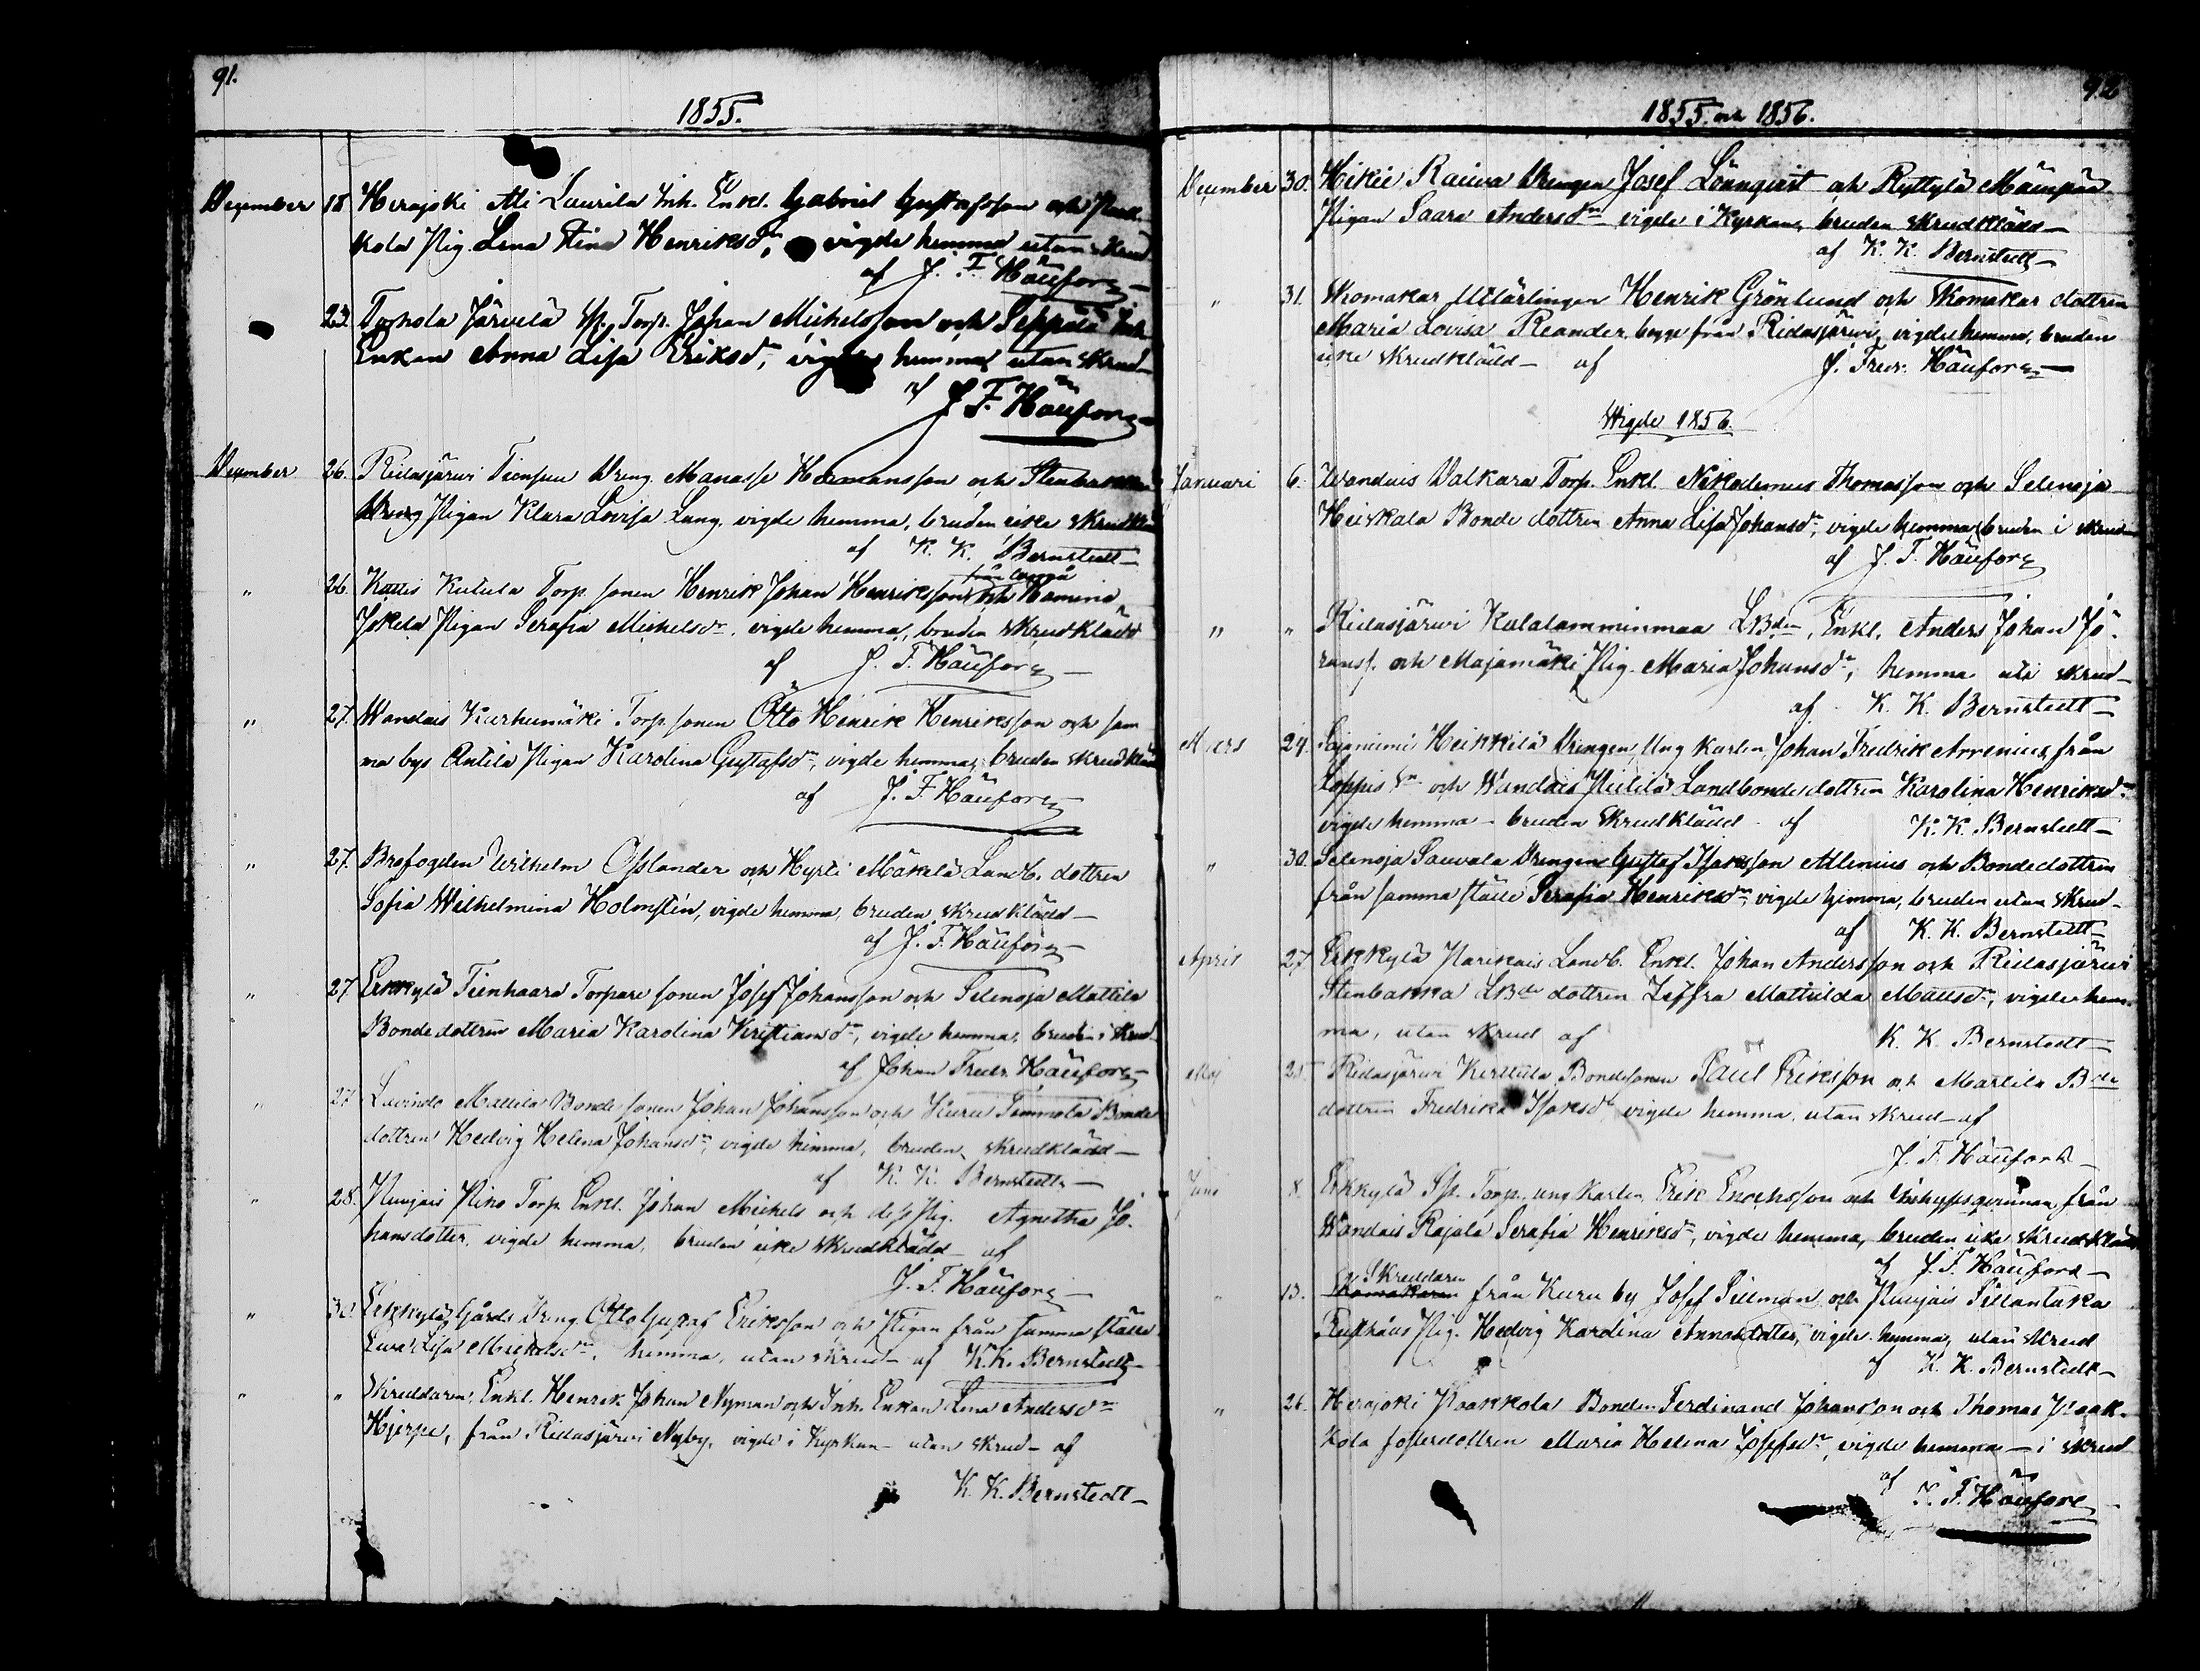 91.
1855.
December 18. Herajoki Ali Laurila Inh. Enkl. Gabriel Gustafsson och Paak-
kola Pig. Lena Stina Henriksdr, vigde hemma utan skrud
af J. F. Häufors
23. Torhola Järvelä Sp. Torp. Johan Michelsson och Seppälä Inh.
Enkan Anna Lisa Eriksdr, vigde hemma utan skrud
af J. F. Häufors
December 26. Ridasjärvi Dreng. Manasse Hermansson och Stenbacka
Pigan Klara Lovisa Lang, vigde hemma, bruden icke skrudklädd
af K. K. Bernstedt
" 26. Kattis Kutula Torp. sonen Henrik Johan Henriksson och Hamina
Jokela Pigan Serafia Michelsdr, vigde hemma, bruden skrudklädd
af J. F. Häufors
" 27. Wandais Karhumäki Torp. sonen Otto Henrik Henriksson och sam
ma bys Antila Pigan Karolina Gustafsdr, vigde hemma, bruden skrudklädd
af J. F. Häufors
" 27. Brofogden Wilhelm Osslander och Hyrli Mäkelä Landb. dottren
Sofia Wilhelmina Holmstén, vigde hemma, bruden skrudklädd
af J. F. Häufors
" 27. Erkkylä Tienhaara Torpare sonen Josef Johansson och Selenoja Mattila
Bondedottren Maria Karolina Kristiansdr, vigde hemma, bruden i skrud
af Johan Fredr. Häufors
" 27. Mattila Bonde sonen Johan Johansson och Kuru Simmola Bonde
dottren Hedvig Helena Johansdr, vigde hemma, bruden skrudklädd
af K. K. Bernstedt
" 28. Punjais Piko Torp. Enkl. Johan Michels och dess Pig. Agnetha Jo-
hansdotter, vigde hemma, bruden icke skrudklädd af
J. F. Häufors
" 30. Erkkylä Gårds Dreng Otto Gustaf Eriksson och Pigan från samma ställe
Eva Lisa Michelsdr, hemma, utan skrud af K. K. Bernstedt
" " Skreddaren, Enkl. Henrik Johan Nyman och Inh. Enkan Lena Andersdr
Hjerpe, från Ridasjärvi Nyby, vigde i Kyrkan utan skrud af
K. K. Bernstedt
92
1855 och 1856.
December 30. Hikiä Raiva Drengen Josef Lönnqvist och Ryttylä Mäenpää
Pigan Saara Andersdr vigde i Kyrkan, bruden skrudklädd
af K. K. Bernstedt
" 31. Skomakar Mälärlingen Henrik Grönlund och Skomakar dottren
Maria Lovisa Reander, begge från Ridasjärvi, vigde hemma, bruden
icke skrudklädd af J. Fredr. Häufors
Wigde 1856.
Januari 6. Wandais Valkara Torp. Enkl. Nikodemus Thomasson och Selenoja
Heiskala Bonde dottren Anna Lisa Johansdr, vigde hemma, bruden i skrud
af J. F. Häufors
" " Ridasjärvi Kalalamminmaa LBden, Enkl. Anders Johan Jö-
ranss. och Majamäki Pig. Maria Johansdr, hemma uti skrud
af K. K. Bernstedt
Mars 24. Sajaniemi Heikkilä Drengen, Ung Karlen, Johan Fredrik Arrenius, från
Loppis Sn och Wandais Pietilä Landbondedottren Karolina Henriksdr
vigde hemma bruden skrudklädd af K. K. Bernstedt
" 30. Selenoja Sauvala Drengen Gustaf Isaksson Allenius och Bondedottren
från samma ställe Serafia Henriksdr, vigde hemma, bruden utan skrud
af K. K. Bernstedt
April 27. Erkkylä Parikais Landb. Enkl. Johan Andersson och Ridasjärvi
Stenbacka LBde dottren Zeffra Mathilda Mattsdr, vigde hem-
ma, utan skrud af K. K. Bernstedt
Maj 25. Ridasjärvi Kerttula Bondesonen Paul Eriksson och Martila Bde
dottren Fredrika Isaksdr, vigde hemma, utan skrud af
J. F. Häufors
Juni 8. Erkkylä Sp. Torp., ung Karlen, Erik Enochsson och Inhysesqvinnan från
Wandais Rajala Serafia Henriksdr, vigde hemma, bruden icke skrudklädd
af J. F. Häufors
" 13. Skreddaren
Skomakaren från Kuru by Josef Sillman och Punjais Sillantaka
Pig. Hedvig Karolina Annasdotter, vigde hemma, utan skrud
af K. K. Bernstedt
" 26. Herajoki Paakkola Bonden Ferdinand Johansson och Thomas Paak-
kola fosterdottren Maria Helena Josefsdr, vigde hemma i skrud
af J. F. Häufors